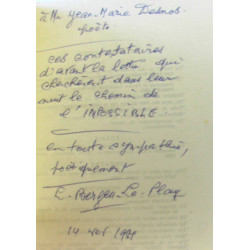 à Mr Jean-Marie Desnos
poète
ces contestataires
d'avant la lettre qui
cherchèrent dans leur
nuit le chemin de
l'IMPOSSIBLE
en toute sympathie,
poétiquement
E. Bergen-Le-Play
14